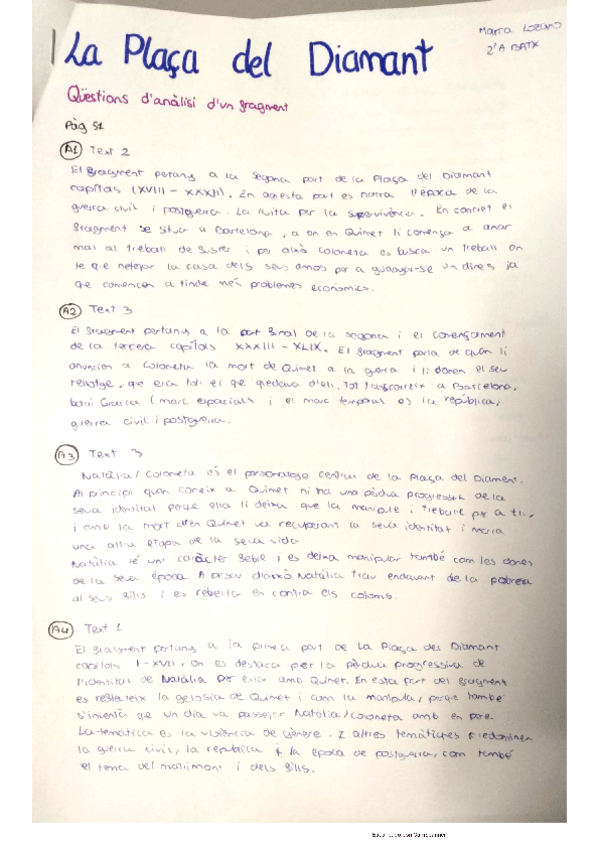 Marta Lozano
2ºA BATX
La Plaça del Diamant
Qüestions d'anàlisi d'un fragment
Pàg 51
A1 Text 2
El fragment pertany a la segona part de la Plaça del Diamant
capítols (XVIII - XXXII). En aquesta part es narra l'època de la
guerra civil i postguerra. La lluita per la supervivència. En concret el
fragment se situa a Barcelona, a on en Quimet li comença a anar
mal al treball de fuster i per això Colometa es busca un treball on
té que netejar la casa dels seus amos per a guanyar-se un diners, ja
que comencen a tindre més problemes econòmics.
A2 Text 3
El fragment pertany a la part final de la segona i el començament
de la tercera capítols XXXIII - XLIX. El fragment parla de quan li
anuncien a Colometa la mort de Quimet a la guerra i li donen el seu
rellotge, que era tot el que quedava d'ell. Tot transcorreix a Barcelona,
barri Gràcia (marc espacial) i el marc temporal es la república,
guerra civil i postguerra.
A3 Text 3
Natàlia/Colometa és el personatge central de la Plaça del Diamant.
Al principi quan coneix a Quimet hi ha una pèrdua progressiva de la
seva identitat perque ella li deixa que la manipule i treballe per a
i amb la mort d'en Quimet va recuperant la seua identitat i
una altra etapa de la seva vida
Natàlia té un caràcter feble i es deixa manipular també com les dones
de la seva època. A pesar d'això Natàlia trau endavant de la pobresa
al seus fills i es rebel·la en contra els coloms.
A4 Text 1
El fragment pertany a la primera part de La Plaça del Diamant
capítols I-XVII, on es destaca per la pèrdua progressiva de
l'identitat de Natàlia per estar amb Quimet. En esta part del fragment
es reflateix la gelosia de Quimet i com la manipula, perque també
s'inventa que un dia va passejar Natàlia/Colometa amb en Pere.
La temàtica es la violència de gènere. I altres temàtiques predominen
la guerra civil, la república i la època de postguerra, com també
el tema del matrimoni i dels fills.